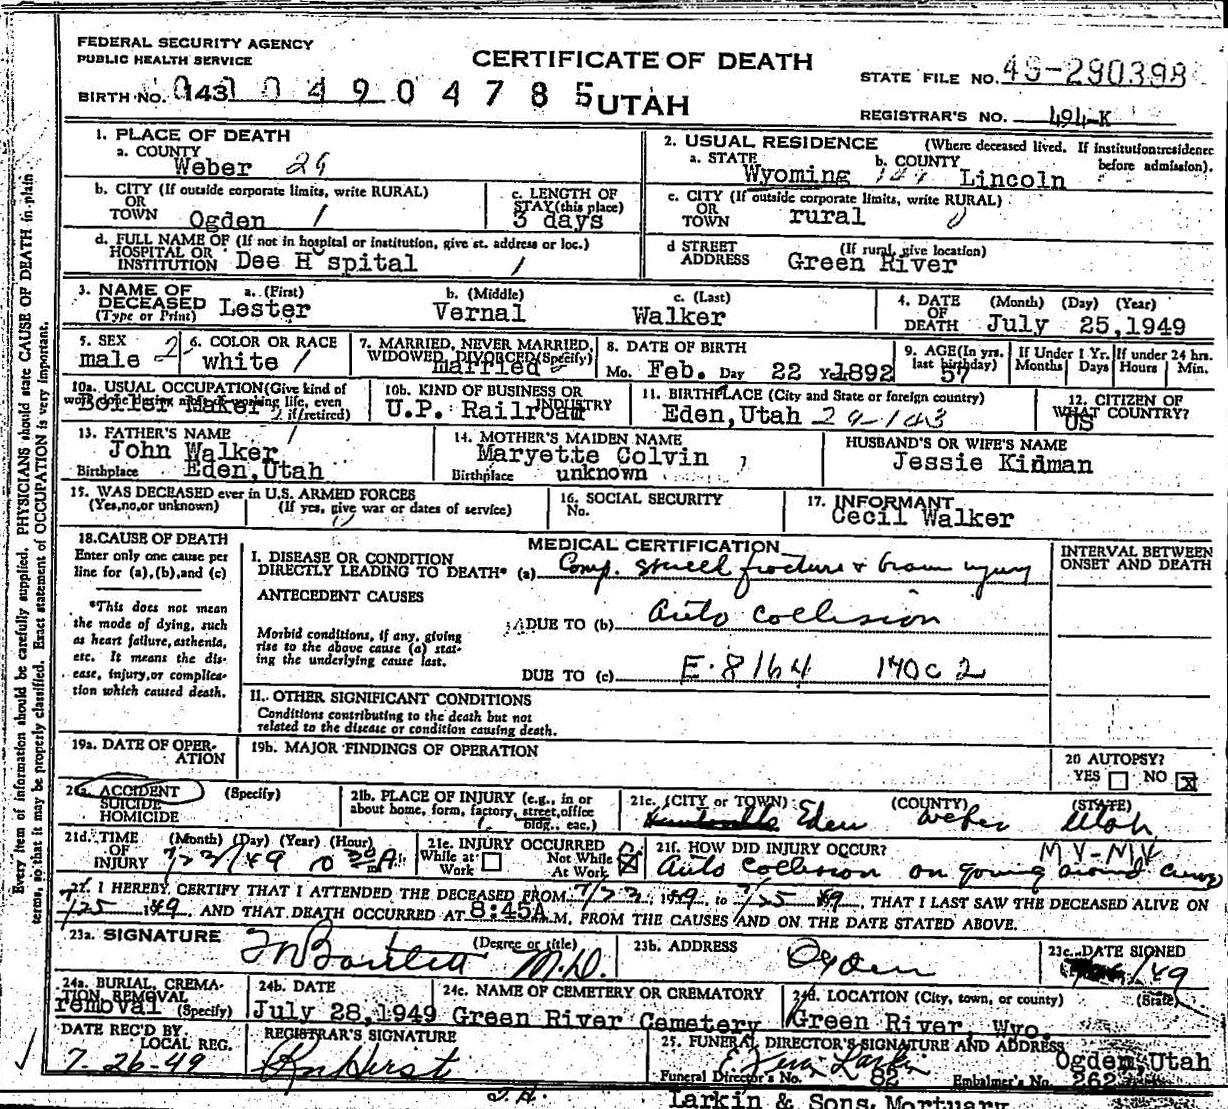 FEDERAL SECURITY AGENCY
PUBLIC HEALTH SERVICE
CERTIFICATE OF DEATH
STATE FILE NO. 49-290398
BIRTH NO. 0143 1 0 4 9 0 4 7 8 5 UTAH
REGISTRAR'S NO. 494-K
1. PLACE OF DEATH
a. COUNTY
Weber 29
2. USUAL RESIDENCE (Where deceased lived. If institution: residence before admission).
a. STATE Wyoming b. COUNTY Lincoln
b. CITY (If outside corporate limits, write RURAL)
OR
TOWN Ogden 1
c. LENGTH OF
STAY (this place)
3 days
c. CITY (If outside corporate limits, write RURAL)
OR
TOWN rural
d. FULL NAME OF (If not in hospital or institution, give st. address or loc.)
HOSPITAL OR
INSTITUTION Dee H spital
d STREET (If rural, give location)
ADDRESS Green River
3. NAME OF DECEASED (Type or Print)
a. (First) Lester
b. (Middle) Vernal
c. (Last) Walker
4. DATE OF DEATH (Month) (Day) (Year)
July 25,1949
5. SEX
male 2
6. COLOR OR RACE
white 1
7. MARRIED, NEVER MARRIED,
WIDOWED, DIVORCED (Specify)
married
8. DATE OF BIRTH
Mo. Feb. Day 22 Yr 1892
9. AGE (In yrs. last birthday)
57
If Under 1 Yr. Months Days
If under 24 hrs. Hours Min.
10a. USUAL OCCUPATION (Give kind of
work done during most of working life, even
if retired)
Boiler Maker
10b. KIND OF BUSINESS OR
INDUSTRY
U.P. Railroad
11. BIRTHPLACE (City and State or foreign country)
Eden,Utah 29-143
12. CITIZEN OF
WHAT COUNTRY?
US
13. FATHER'S NAME
John Walker
Birthplace Eden,Utah
14. MOTHER'S MAIDEN NAME
Maryette Colvin
Birthplace unknown
HUSBAND'S OR WIFE'S NAME
Jessie Kidman
15. WAS DECEASED ever in U.S. ARMED FORCES
(Yes, no, or unknown) (If yes, give war or dates of service)
16. SOCIAL SECURITY
No.
17. INFORMANT
Cecil Walker
18. CAUSE OF DEATH
Enter only one cause per
line for (a), (b), and (c)
*This does not mean
the mode of dying, such
as heart failure, asthenia,
etc. It means the dis-
ease, injury, or complica-
tion which caused death.
MEDICAL CERTIFICATION
INTERVAL BETWEEN
ONSET AND DEATH
I. DISEASE OR CONDITION
DIRECTLY LEADING TO DEATH* (a) Comp. skull fracture & brain injury
ANTECEDENT CAUSES
Morbid conditions, if any, giving
rise to the above cause (a) stat-
ing the underlying cause last.
DUE TO (b) Auto Collision
DUE TO (c) E-8164 170c2
II. OTHER SIGNIFICANT CONDITIONS
Conditions contributing to the death but not
related to the disease or condition causing death.
19a. DATE OF OPER-
ATION
19b. MAJOR FINDINGS OF OPERATION
20 AUTOPSY?
YES NO X
21a. ACCIDENT (Specify)
SUICIDE
HOMICIDE
21b. PLACE OF INJURY (e.g., in or
about home, form, factory, street, office
bldg., eac.)
21c. (CITY or TOWN) (COUNTY) (STATE)
Huntsville Eden Weber Utah
21d. TIME OF INJURY (Month) (Day) (Year) (Hour)
7/23/49
21e. INJURY OCCURRED
While at Work
Not While At Work X
21f. HOW DID INJURY OCCUR? MV-MV
Auto Collision on going around curve
22. I HEREBY CERTIFY THAT I ATTENDED THE DECEASED FROM 7/23, 1949, to 7/25 1949, THAT I LAST SAW THE DECEASED ALIVE ON
7/25 1949, AND THAT DEATH OCCURRED AT 8:45A M, FROM THE CAUSES AND ON THE DATE STATED ABOVE.
23a. SIGNATURE (Degree or title)
Bartlett M.D.
23b. ADDRESS
Ogden
23c. DATE SIGNED
/49
24a. BURIAL, CREMA-
TION, REMOVAL
(Specify) removal
24b. DATE
July 28,1949
24c. NAME OF CEMETERY OR CREMATORY
Green River Cemetery
24d. LOCATION (City, town, or county) (State)
Green River, Wyo.
DATE REC'D BY
LOCAL REG.
7-26-49
REGISTRAR'S SIGNATURE
Hirst
25. FUNERAL DIRECTOR'S SIGNATURE AND ADDRESS
Larkin Ogden,Utah
Funeral Director's No. 82 Embalmer's No. 262
Larkin & Sons, Mortuary
Every item of information should be carefully supplied. PHYSICIANS should state CAUSE OF DEATH in plain
terms, so that it may be properly classified. Exact statement of OCCUPATION is very important.